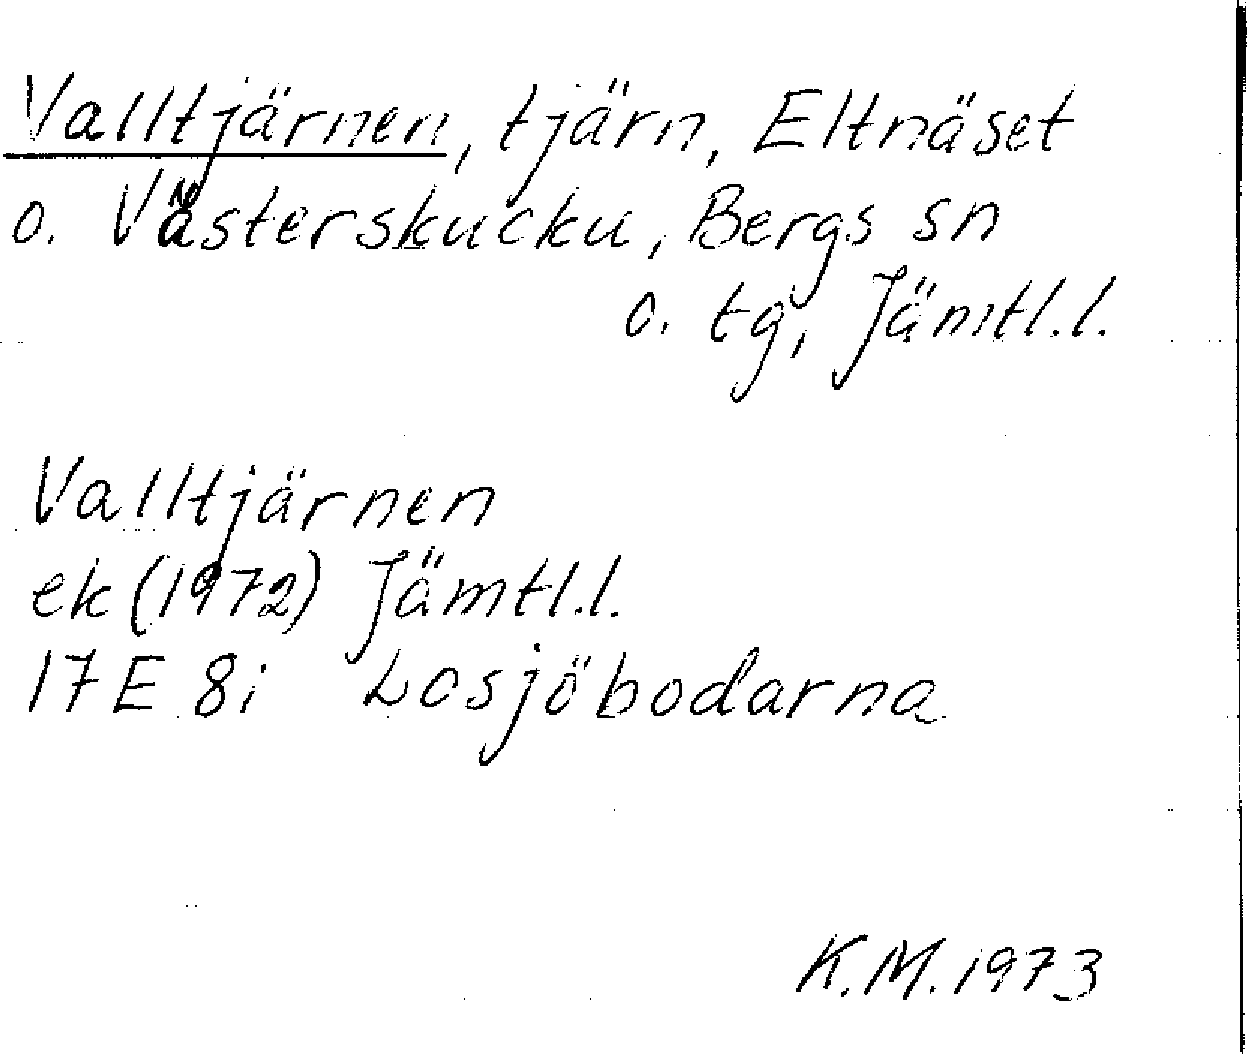 Valltjärnen, tjärn, Eltnäset
o. Västerskucku, Bergs sn
o. tg, Jämtl.l.
Valltjärnen
ek (1972) Jämtl.l.
17E 8i Losjöbodarna
K.M. 1973